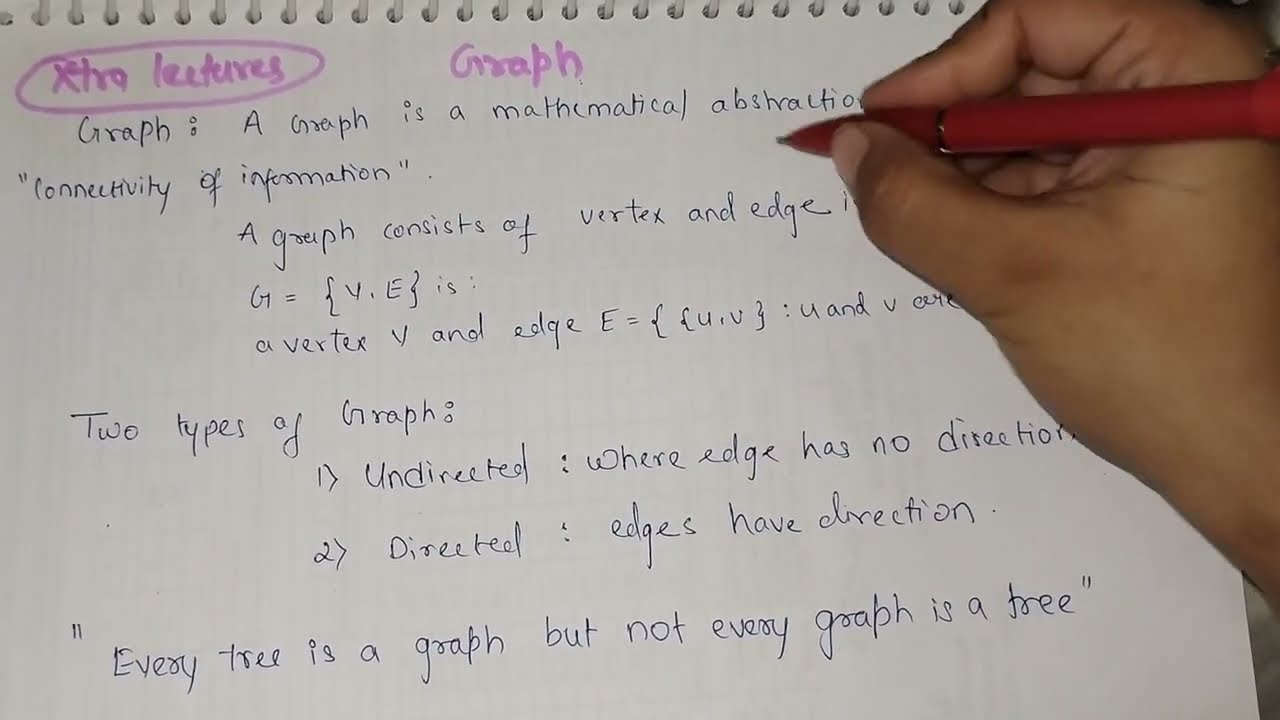 Xtra lectures
Graph
Graph: A Graph is a mathematical abstraction
"Connectivity of information".
A graph consists of vertex and edge
G = {V, E} is:
a vertex V and edge E = { {u, v} : u and v are
Two types of Graph:
1) Undirected : where edge has no direction
2) Directed : edges have direction.
"Every tree is a graph but not every graph is a tree"